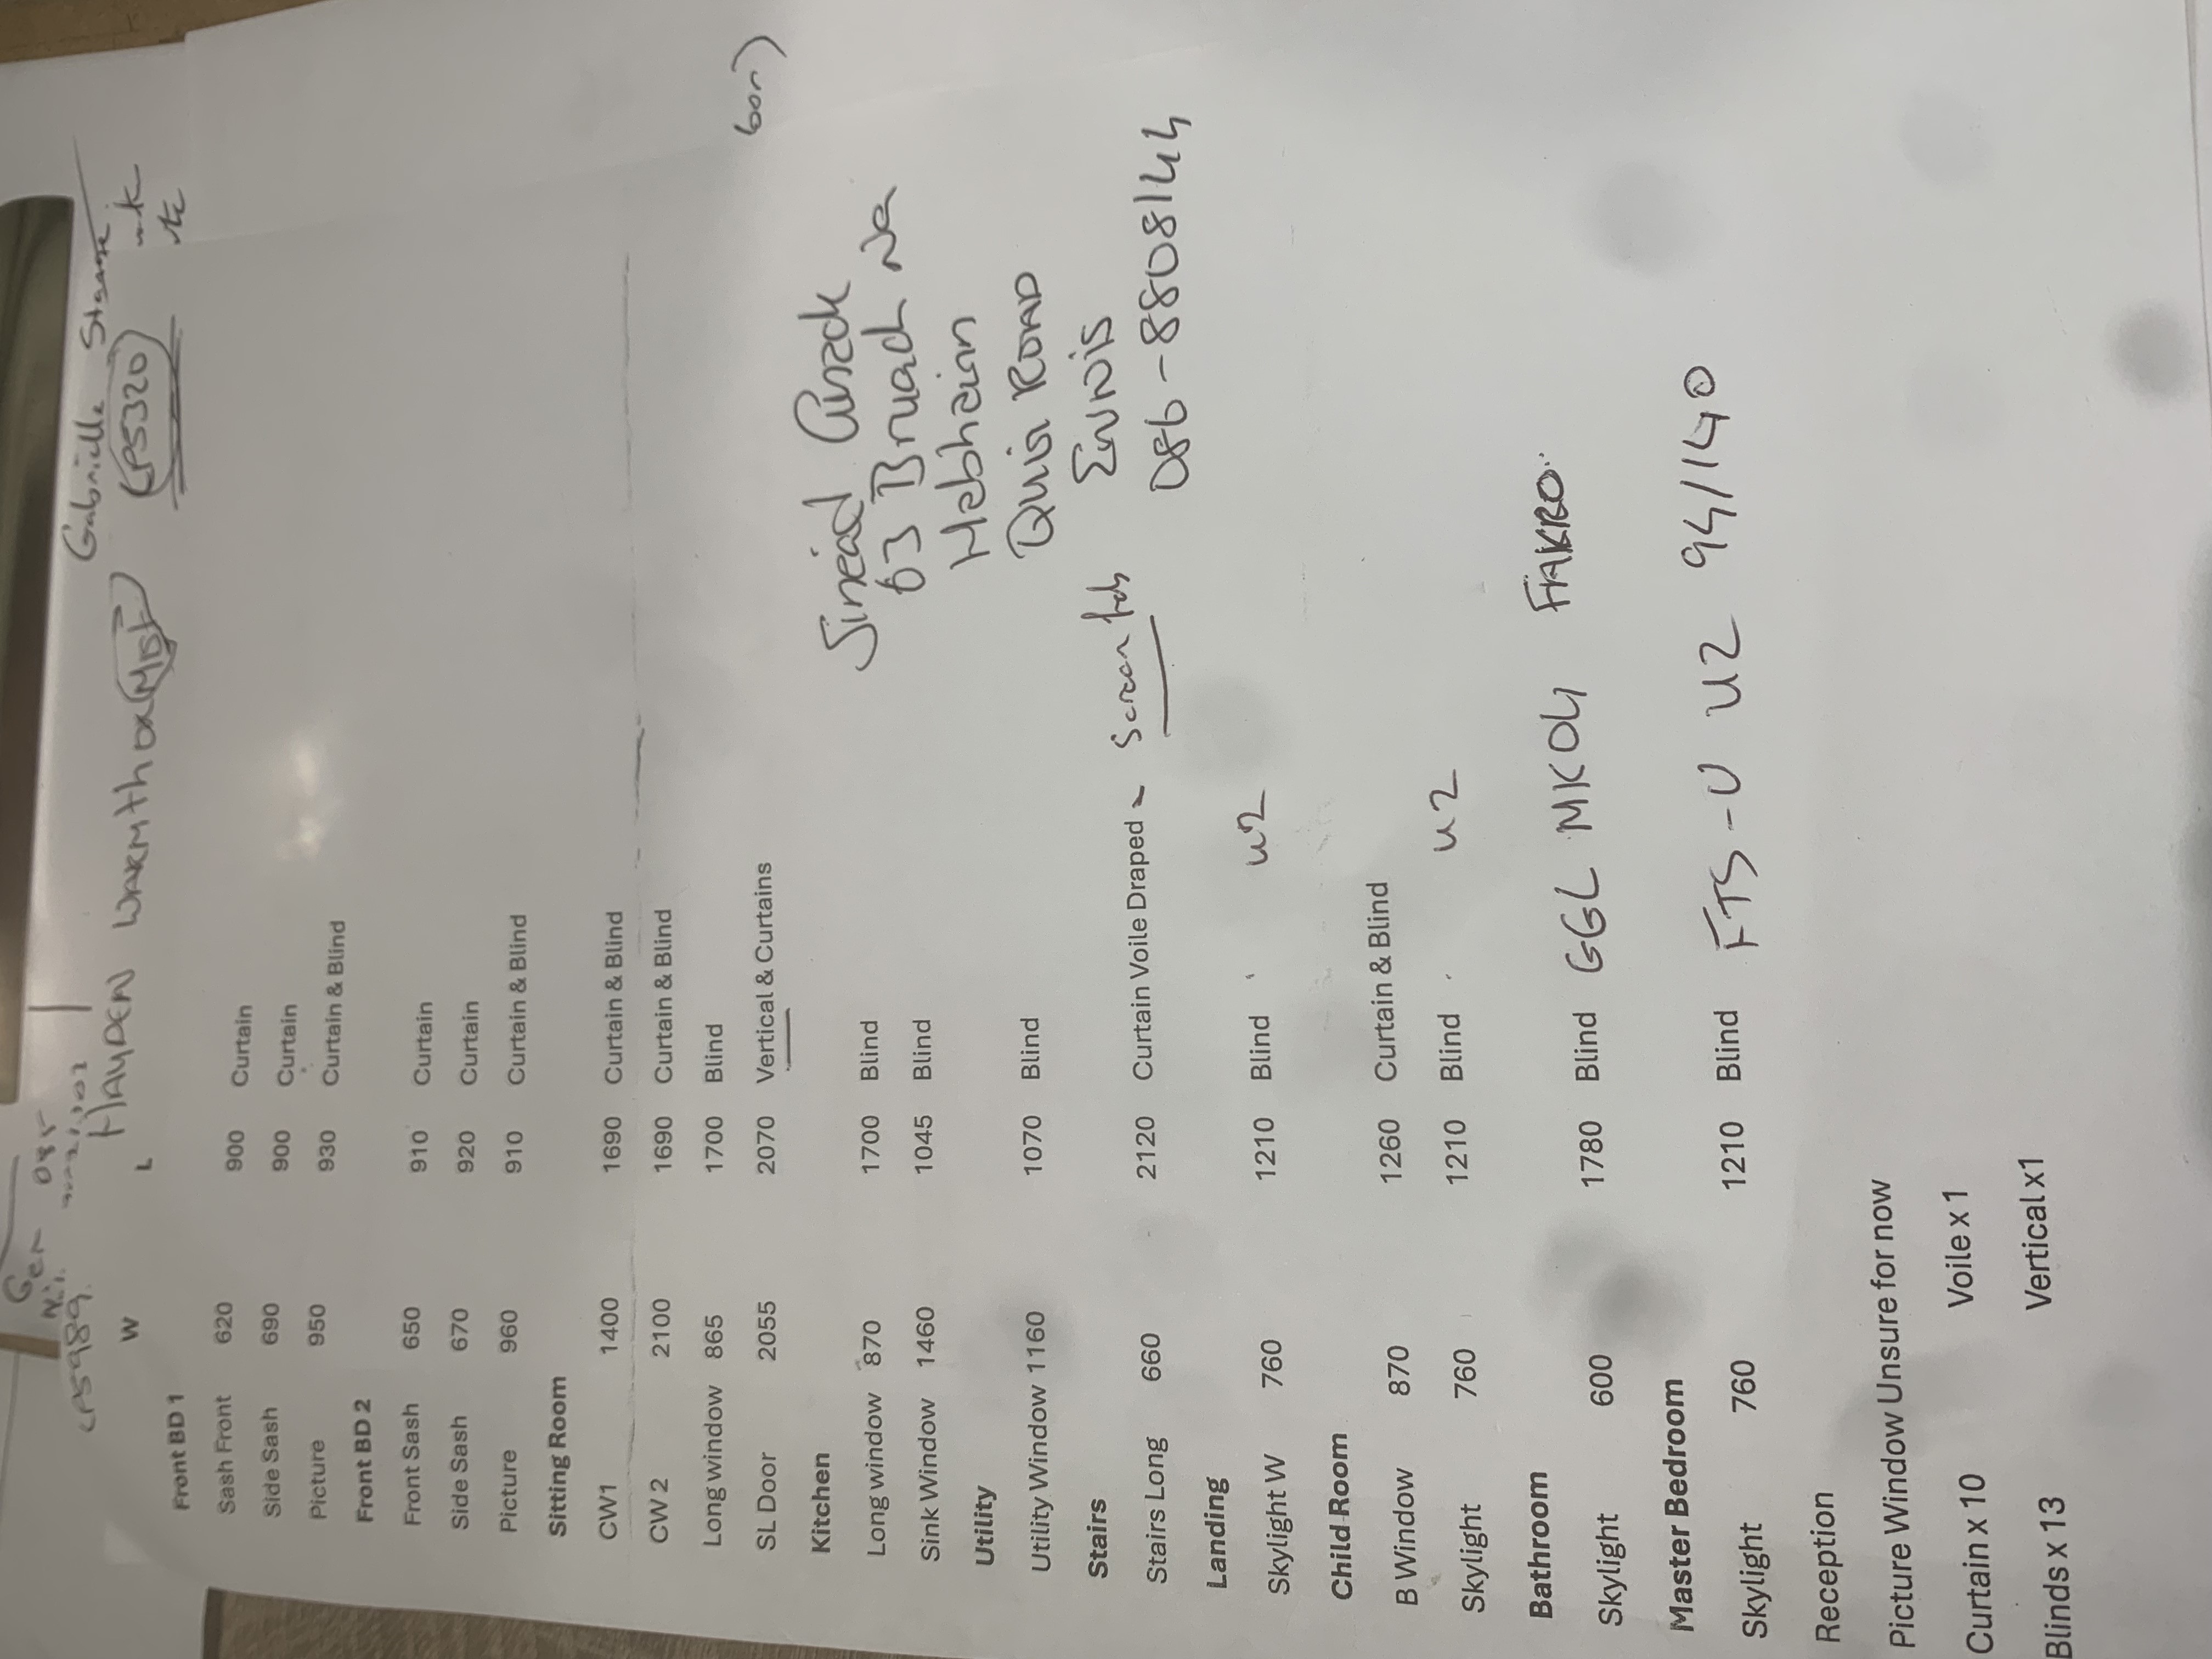 Gabrielle
(P5320)
HAYDEN WARMTH
W L
Front BD 1
Sash Front 620 900 Curtain
Side Sash 690 900 Curtain
Picture 950 930 Curtain & Blind
Front BD 2
Front Sash 650 910 Curtain
Side Sash 670 920 Curtain
Picture 960 910 Curtain & Blind
Sitting Room
CW1 1400 1690 Curtain & Blind
CW 2 2100 1690 Curtain & Blind
Long window 865 1700 Blind
SL Door 2055 2070 Vertical & Curtains
Kitchen
Long window 870 1700 Blind
Sink Window 1460 1045 Blind
Utility
Utility Window 1160 1070 Blind
Stairs
Stairs Long 660 2120 Curtain Voile Draped
Landing
Skylight W 760 1210 Blind u2
Child Room
B Window 870 1260 Curtain & Blind
Skylight 760 1210 Blind u2
Bathroom
Skylight 600 1780 Blind GGL MK04 FAKRO
Master Bedroom
Skylight 760 1210 Blind FTS-U U2 94/140
Reception
Picture Window Unsure for now
Curtain x 10 Voile x 1
Blinds x 13 Vertical x1
Sinéad Cusack
63 Bruach Na
Habhainn
Quin ROAD
ENNIS
086-8808144